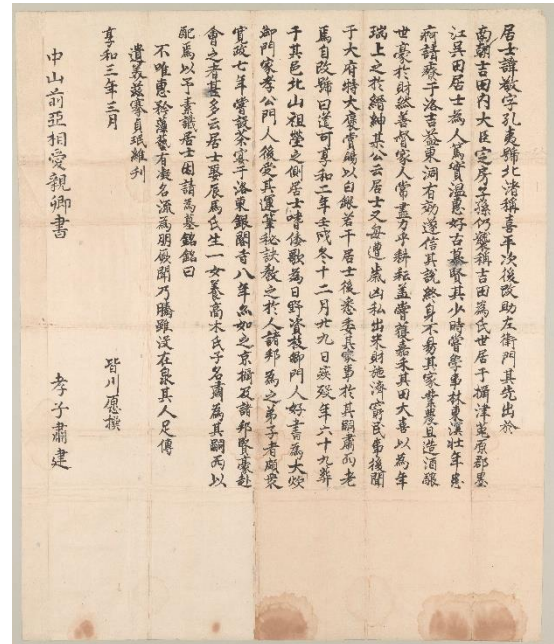 居士諱敬字孔夷號北渚稱喜平次後改助左衛門其先出於
南朝吉田内大臣定房名孫仍襲稱吉田為氏世居于攝津菟原郡墨
江呉田居士為人篤實温惠好古慕賢其少時嘗學東林東溟壮年患
痾請療于洛吉益東洞有効遂信其說終身不易其家業農且造酒釀
世豪於財然善督家人常盡力乎耕耘盖嘗獲嘉禾其田大喜以為年
瑞上之於縉紳某公云居士又每遭歳凶私出米財施濟窮民事後聞
于大府特大褒賞賜以白銀若干居士後悉委其家事於其嗣肅而老
焉自改號曰道可享和二年壬戌冬十二月廿九日疾歿年六十九葬
于其邑北山祖塋之側居士嗜倭歌為日野資枝卿門人好書為大炊
御門家孝公門人後受其運筆秘訣教之於人諸邦為之弟子者頗衆
寛政七年嘗設茶宴于洛東銀閣寺八年亦如之京攝及諸邦賢豪赴
會之者甚多云居士娶辰馬氏生一女養高木氏子名肅為其嗣而以
配焉以予素識居士因請為墓銘銘曰
不唯惠矜藻藝有凝名流為朋厥聞乃騰雖没在泉其人足傳
遺義茲寡貞珉維刊
享和三年三月
皆川愿撰
中山前亞相愛親卿書
孝子肅建